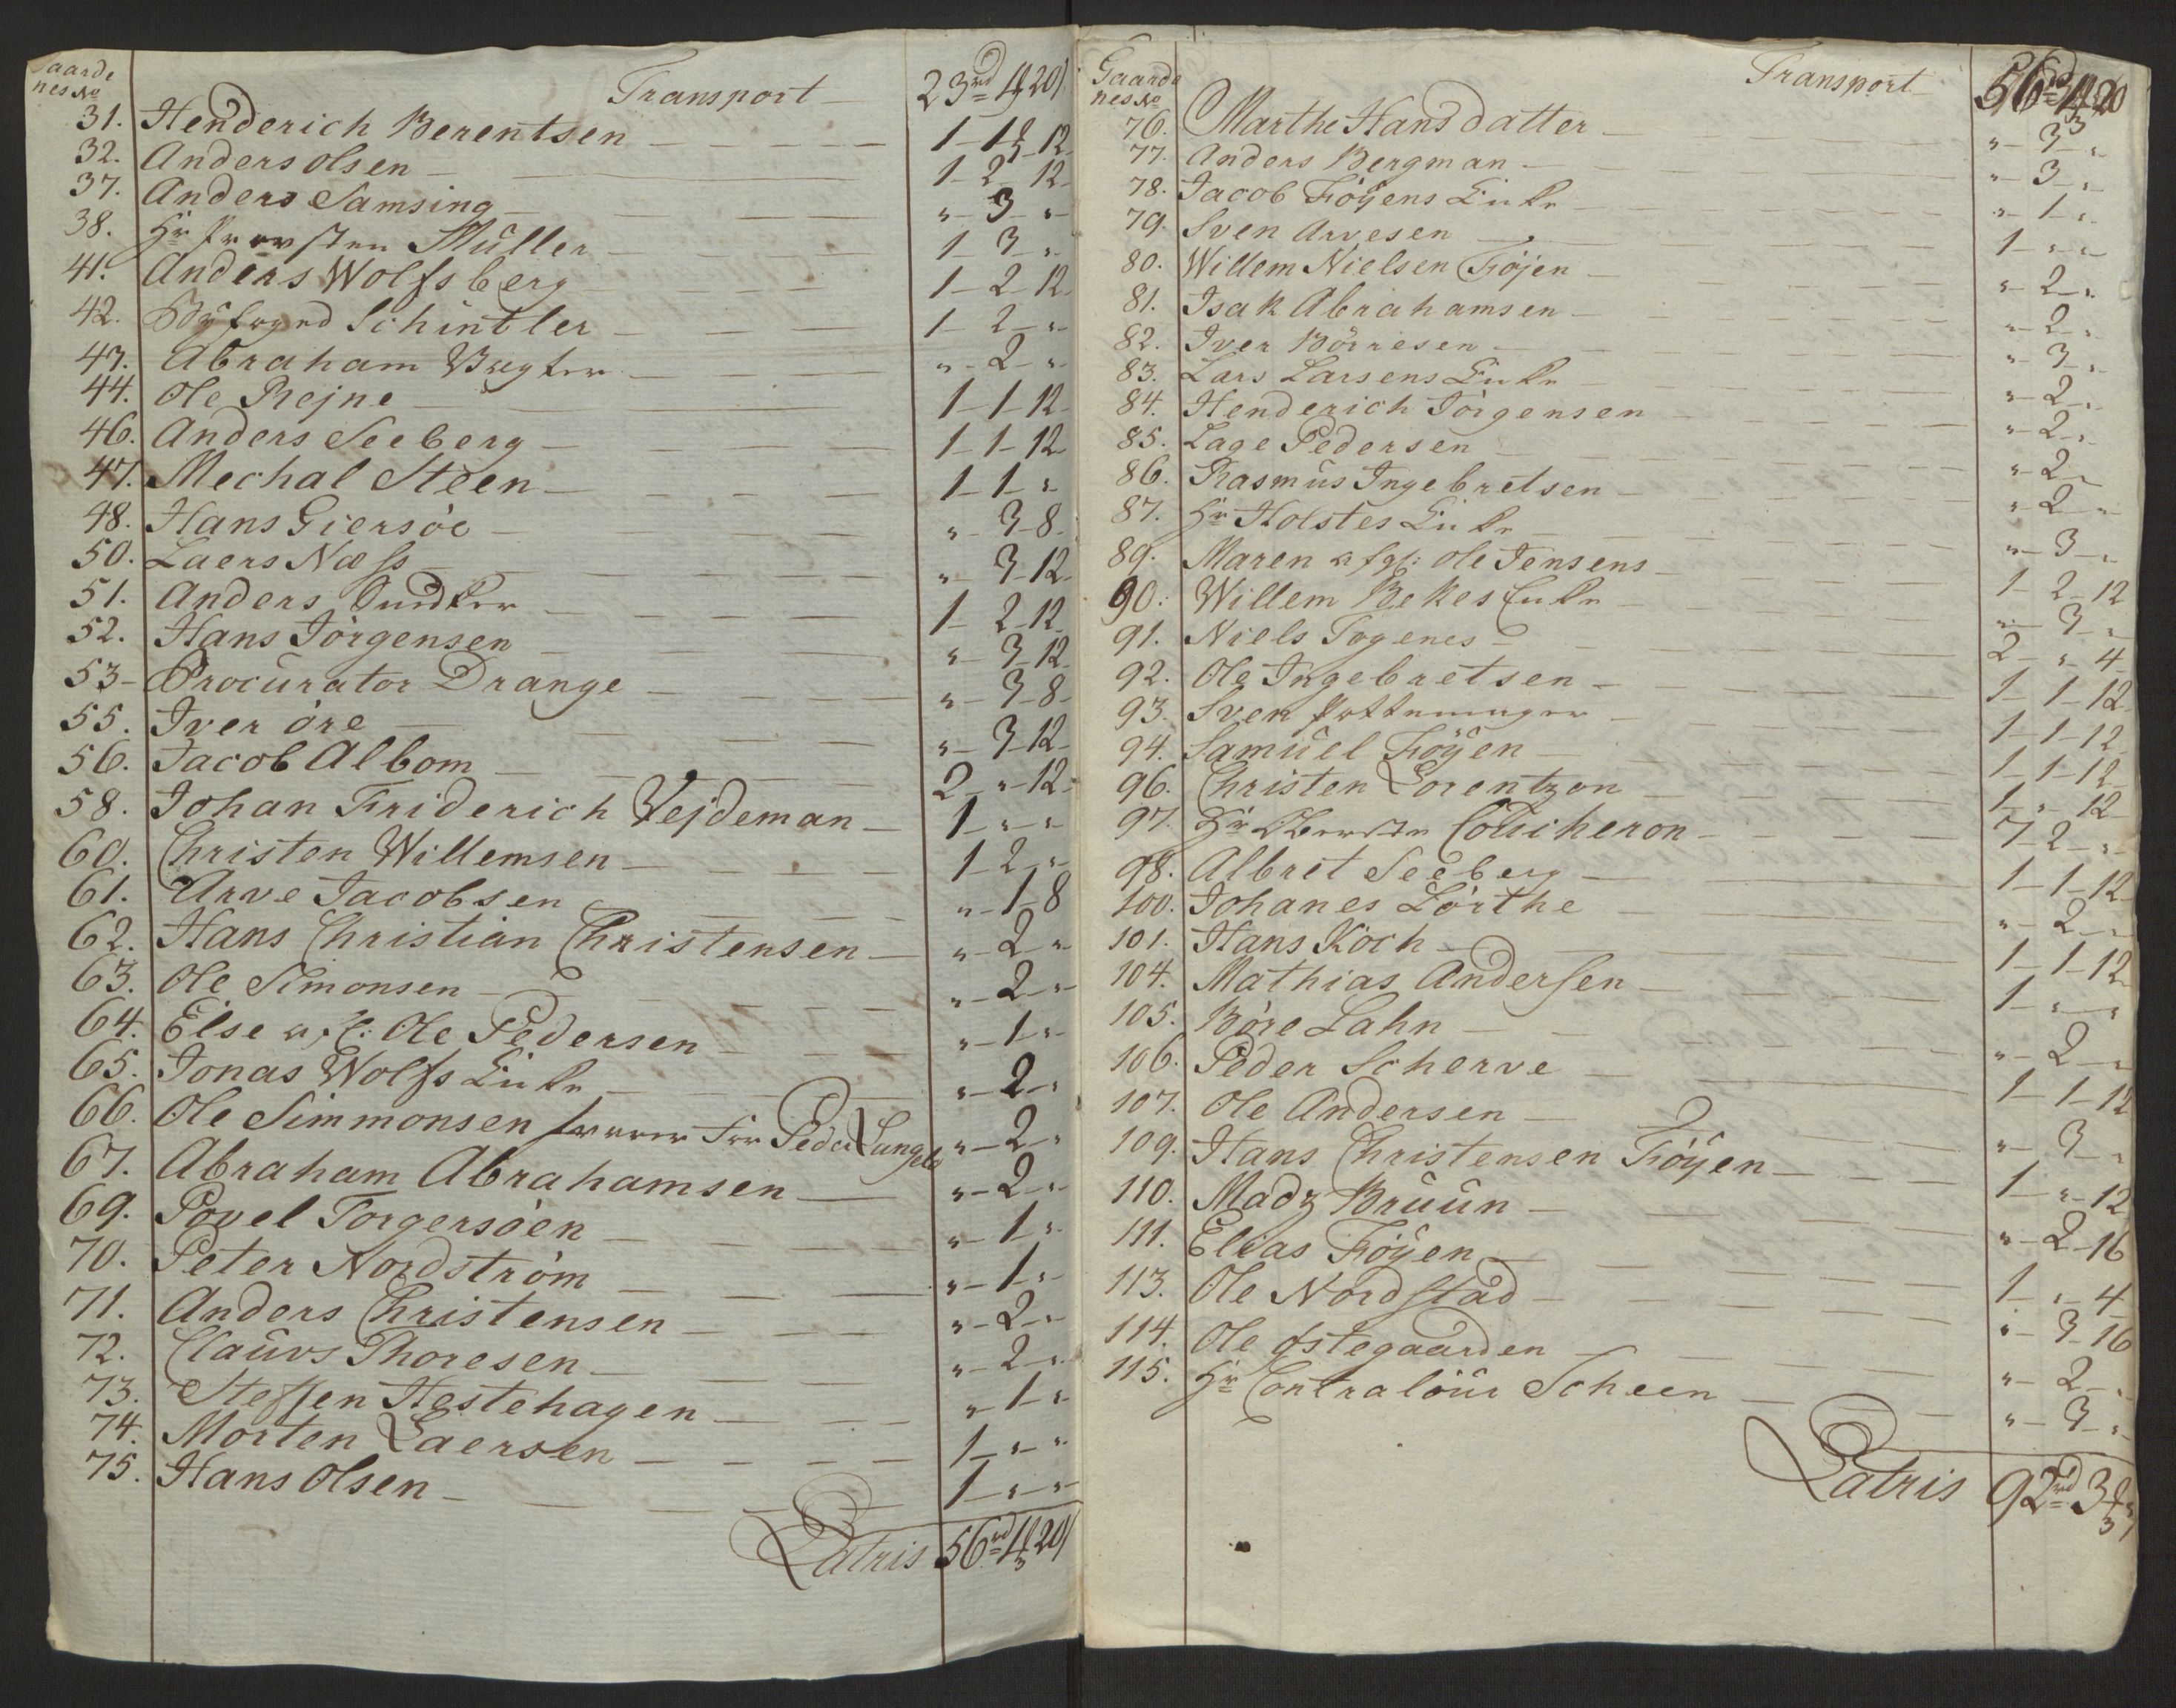 Gaarde
nes No Transport 23rd 4 20
31. Henderich Berentsen 1 - 1 - 12
32. Anders olsen 1 - 2 - 12
37. Anders Samsing " - 3 - "
38. Hr Provsten Müller 1 - 3 - "
41. Anders Wolfsberg 1 - 2 - 12
42. Byfogd Schintler 1 - 2 - "
43. Abraham Vegter " - 2 - "
44. Ole Rejne 1 - 1 - 12
46. Anders Seeberg 1 - 1 - 12
47. Mechal Steen 1 - 1 - "
48. Hans Giersöe " - 3 - 8
50. Laers Næss " - 3 - 12
51. Anders 1 - 2 - 12
52. Hans Jörgensen " - 3 - 12
53 - Procurator Drange " - 3 - 8
55. Iver öre " - 3 - 12
56. Jacob Albom 2 - " - 12
58. Johan Friderich Vejdeman 1 - " - "
60. Christen Willemsen 1 - 2 - "
61. Arve Jacobsen " - 1 - 8
62. Hans Christian Christensen " - 2 - "
63. Ole Simonsen " - 2 - "
64. Else Ole Pedersen " - 1 - "
65. Jonas Wolfs Enke " - 2 - "
66. Ole Simmonsen Peder Lange " - 2 - "
67. Abraham Abrahamsen " - 2 - "
69. Povel Torgersöen " - 1 - "
70. Peter Nordström " - 1 - "
71. Anders Christensen " - 2 - "
72. Claüvs Thoresen " - 2 - "
73. Steffen Hestehagen " - 1 - "
74. Morten Laersen 1 - " - "
75. Hans Olsen 1 - " - "
Latris 56rd 4 20
Gaarde
nes No Transport 56rd 4 20
76. Marthe Hans datter " - 3 - "
77. Anders Bergman " - 3 - "
78. Jacob Föÿens Enke " - 1 - "
79. Sven Arvesen 1 - " - "
80. Willem Nielsen Föjen " - 2 - "
81. Isak Abrahamsen " - 2 - "
82. Iver Börresen " - 3 - "
83. Lars Larsens Enke " - 2 - "
84. Henderich Jörgensen " - 2 - "
85. Lage Pedersen " - 2 - "
86. Rasmus Ingebretsen " - 2 - "
87. Hr Holstes Enke " - 3 - "
89. Maren Ole Jensens 1 - 2 - 12
90. Willem Bekes Enke " - 3 - "
91. Niels Togenes 2 - " - 4
92. Ole Ingebretsen 1 - 1 - 12
93. Sven 1 - 1 - 12
94. Samüel Föÿen 1 - 1 - 12
96. Christen Lorentzon 1 - " - 12
97. Hr Obersten Coucheron 7 - 2 - "
98. Albret Seeberg 1 - 1 - 12
100. Johanes Lörthe " - 2 - "
101. Hans Koch 1 - 1 - 12
104. Mathias Andersen 1 - " - "
105. Böre Lahn " - 2 - "
106. Peder Scherve 1 - 1 - 12
107. Ole Andersen " - 3 - "
109. Hans Christensen Föÿen 1 - " - 12
110. Madz Bruun " - 2 - 16
111. Elias Föÿen 1 - " - 4
113. Ole Nordstad " - 3 - 16
114. Ole östegaarden " - 2 - "
115. Hr Contralöur Scheen " - 3 - "
Latris 92rd 3